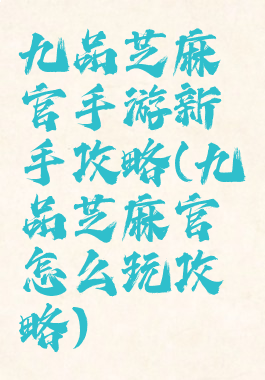 九品芝麻
官手游新
手攻略(九
品芝麻官
怎么玩攻
略)